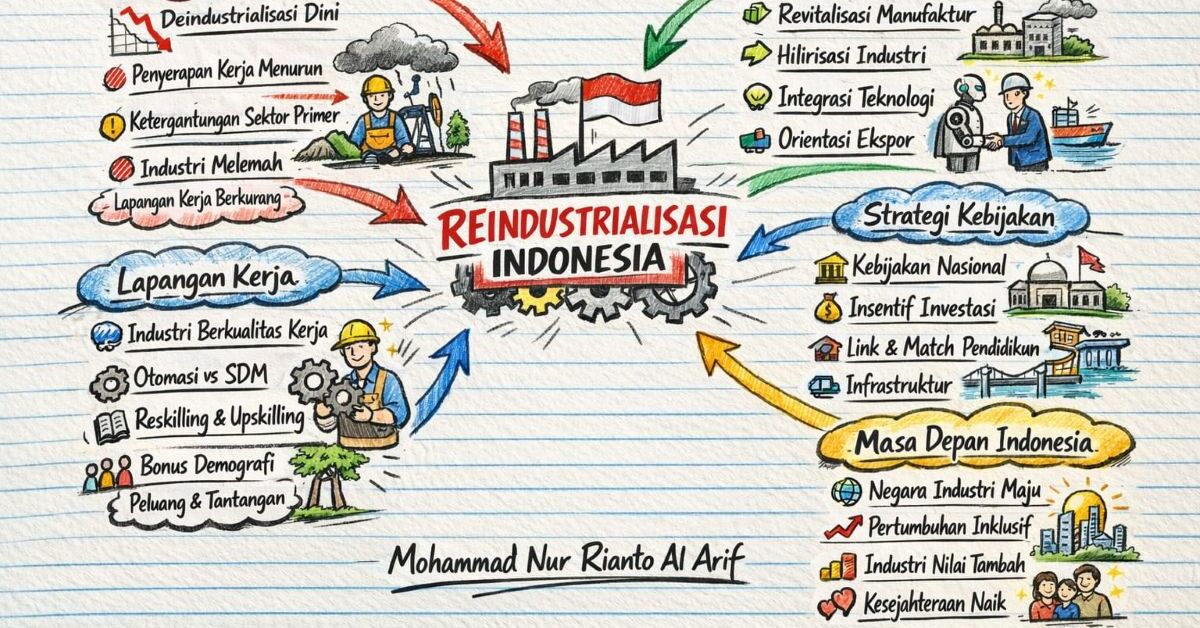 Deindustrialisasi Dini
Penyerapan Kerja Menurun
Ketergantungan Sektor Primer
Industri Melemah
Lapangan Kerja Berkurang
Revitalisasi Manufaktur
Hilirisasi Industri
Integrasi Teknologi
Orientasi Ekspor
REINDUSTRIALISASI
INDONESIA
Lapangan Kerja
Industri Berkualitas Kerja
Otomasi vs SDM
Reskilling & Upskilling
Bonus Demografi
Peluang & Tantangan
Strategi Kebijakan
Kebijakan Nasional
Insentif Investasi
Link & Match Pendidikun
Infrastruktur
Masa Depan Indonesia
Negara Industri Maju
Pertumbuhan Inklusif
Industri Nilai Tambah
Kesejahteraan Naik
Mohammad Nur Rianto Al Arif